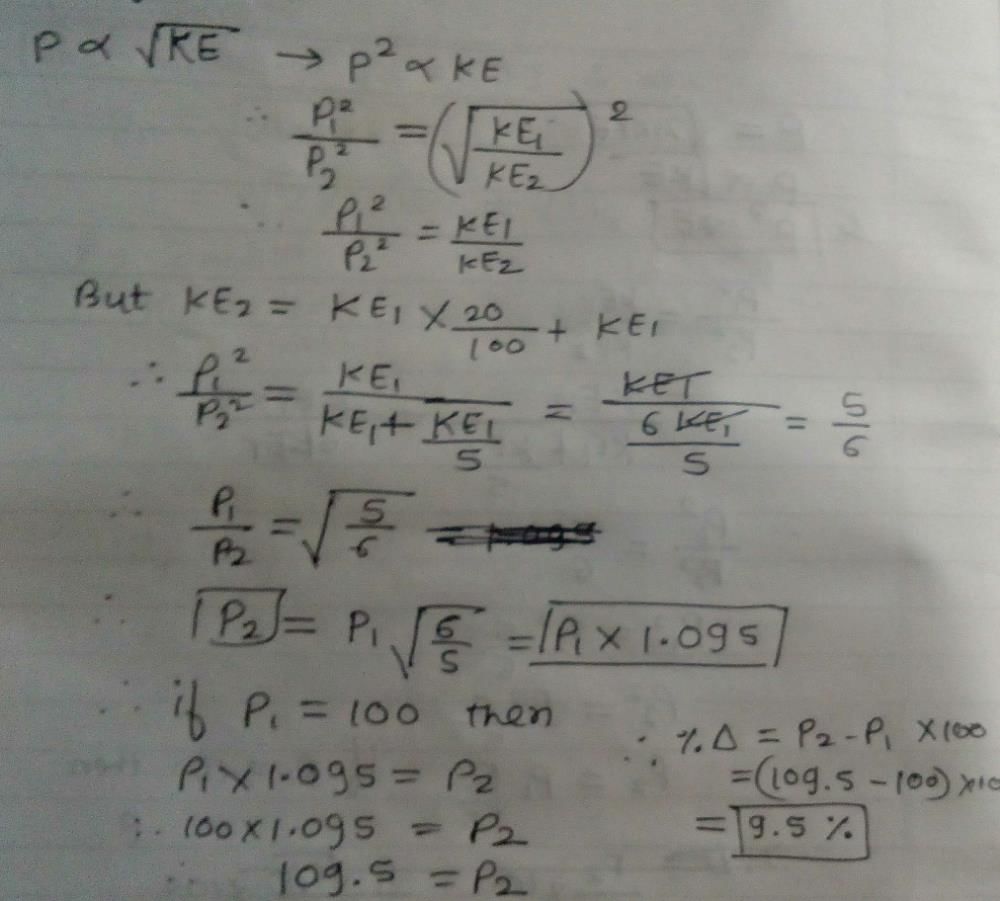 P ∝ √KE → P² ∝ KE
∴ P₁²/P₂² = (√(KE₁/KE₂))²
∴ P₁²/P₂² = KE₁/KE₂
But KE₂ = KE₁ × 20/100 + KE₁
∴ P₁²/P₂² = KE₁/(KE₁ + KE₁/5) = KE₁/(6 KE₁/5) = 5/6
∴ P₁/P₂ = √(5/6)
∴ P₂ = P₁ √(6/5) = P₁ × 1.095
∴ if P₁ = 100 then
P₁ × 1.095 = P₂
∴ 100 × 1.095 = P₂
∴ 109.5 = P₂
∴ % Δ = P₂ - P₁ × 100
= (109.5 - 100) ×
= 9.5 %